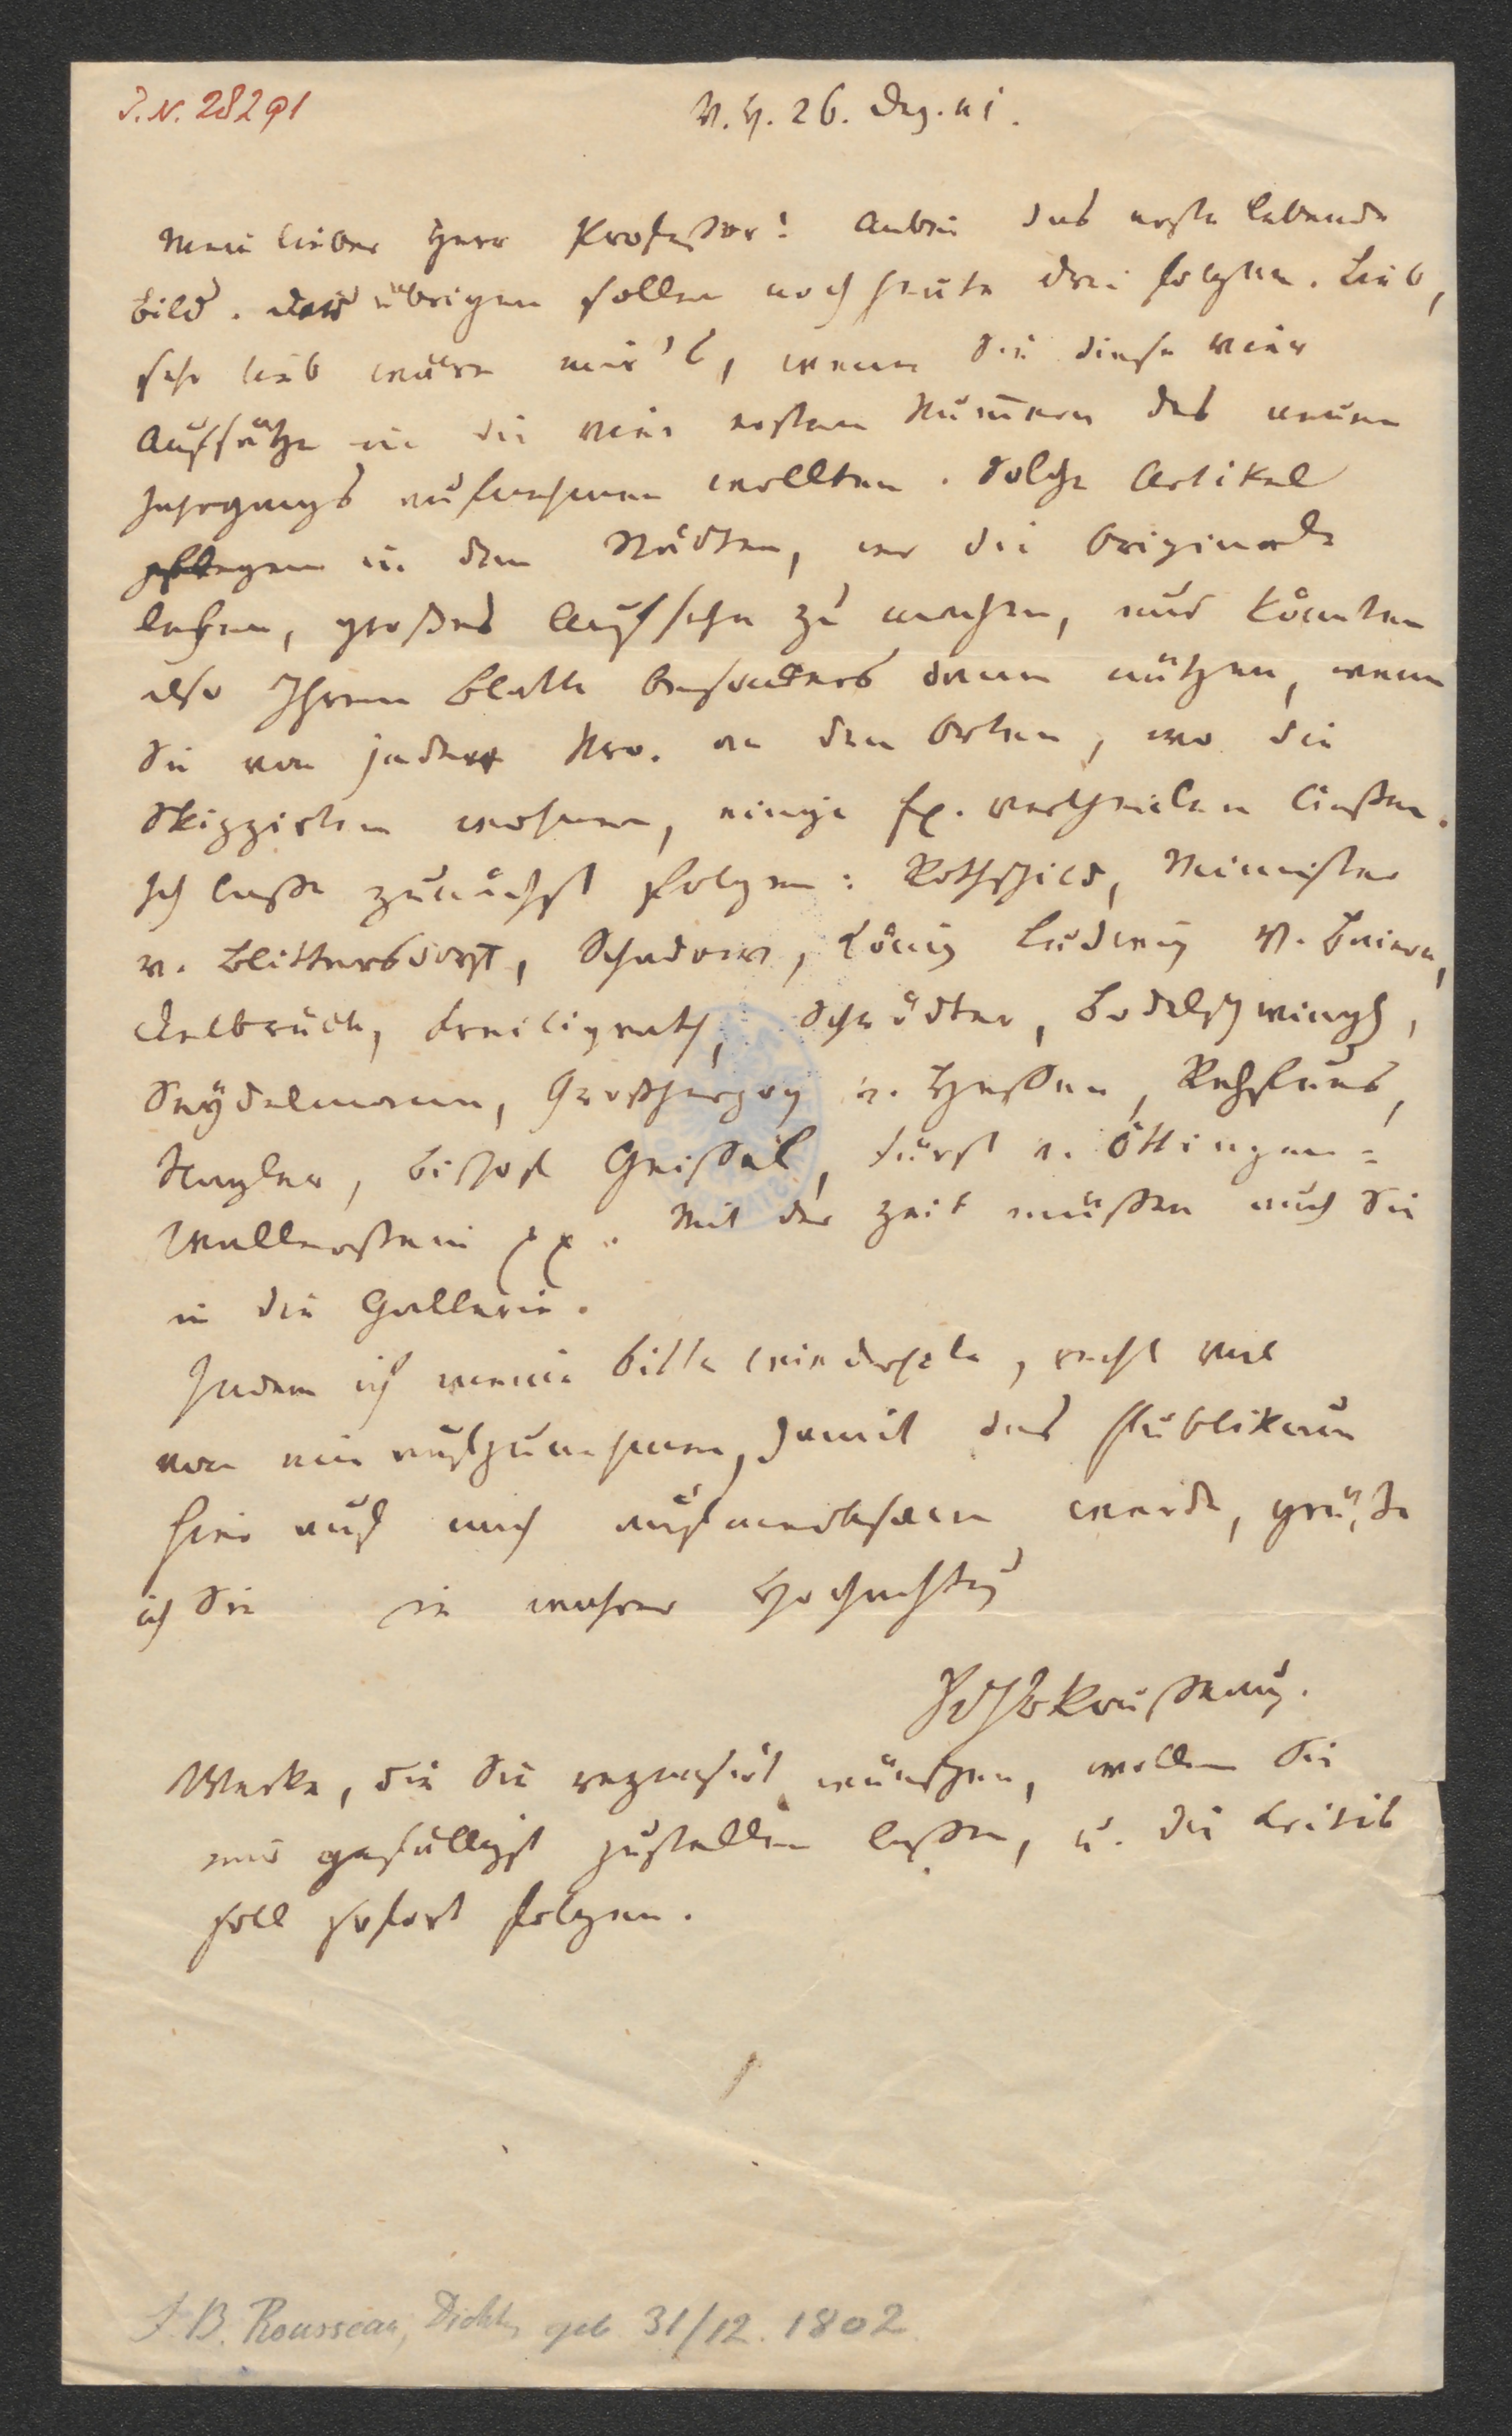 J.N. 28291
V. H. 26. Dez. 41.
Mein lieber Herr Professor! Anbei das erste lebende
Bild. Die übrigen sollen noch heute drei folgen. Lieb,
sehr lieb wäre mir's, wenn Sie diese vier
Aufsätze in die vier ersten Nummern des neuen
Jahrgangs aufnehmen wollten. Solche Artikel
pflegen in den Städten, wo die Originale
leben, großes Aufsehn zu machen, und könnten
also Ihrem Blatte besonders dann nützen, wenn
Sie von jeder Nro. an den Orten, wo die
Skizzirten wohnen, einige Ex. vertheilen ließen.
Ich lasse zunächst folgen: Rothschild, Minister
v. Blittersdorff, Schadow, König Ludwig v. Baiern,
Delbrück, Freiligrath, Schrödter, Bodelschwingh,
Seydelmann, Großherzog v. Hessen, Rehfues,
Nagler, Bischof Geissel, Fürst v. Öttingen=
Wallerstein pp. Mit der Zeit müssen auch Sie
in die Gallerie.
Indem ich meine Bitte wiederhole, recht viel
von mir aufzunehmen, damit das Publikum
hier auf mich aufmerksam werde, grüße
ich Sie in wahrer Hochachtung
JBRousseau.
Werke, die Sie rezensirt wünschen, wollen Sie
mir gefälligst zustellen lassen, u. die Kritik
soll sofort folgen.
J. B. Rousseau, Dichter geb 31/12. 1802